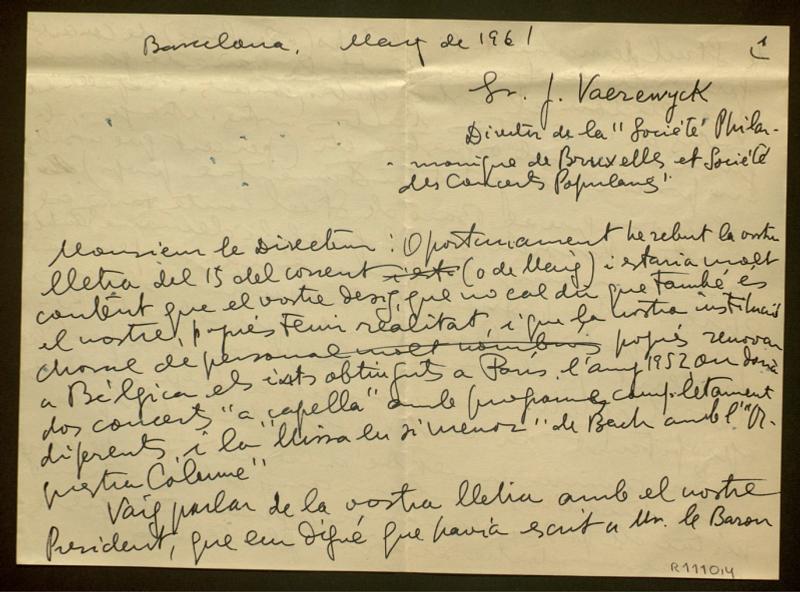 Barcelona, Maig de 1961
1
Sr. J. Vaerewyck
Director de la "Société Philar-
monique de Bruxelles et Société
des Concerts Populaires"
Monsieur le Directeur: Oportunament he rebut la vostra
lletra del 15 del corrent (o de Maig) i estaria molt
content que el vostre desig, que no cal dir que també és
el nostre, pogués tenir realitat, i que la nostra institució
choral de personal molt nombrós pogués renovar
a Bélgica els èxits obtinguts a París l'any 1952 on donà
dos concerts "a capella" amb programes completament
diferents, i la "Missa en si menor" de Bach amb l'"Or-
questra Colonne"
Vaig parlar de la vostra lletra amb el nostre
President, que em digué que havia escrit a Mr. le Baron
R1110,4